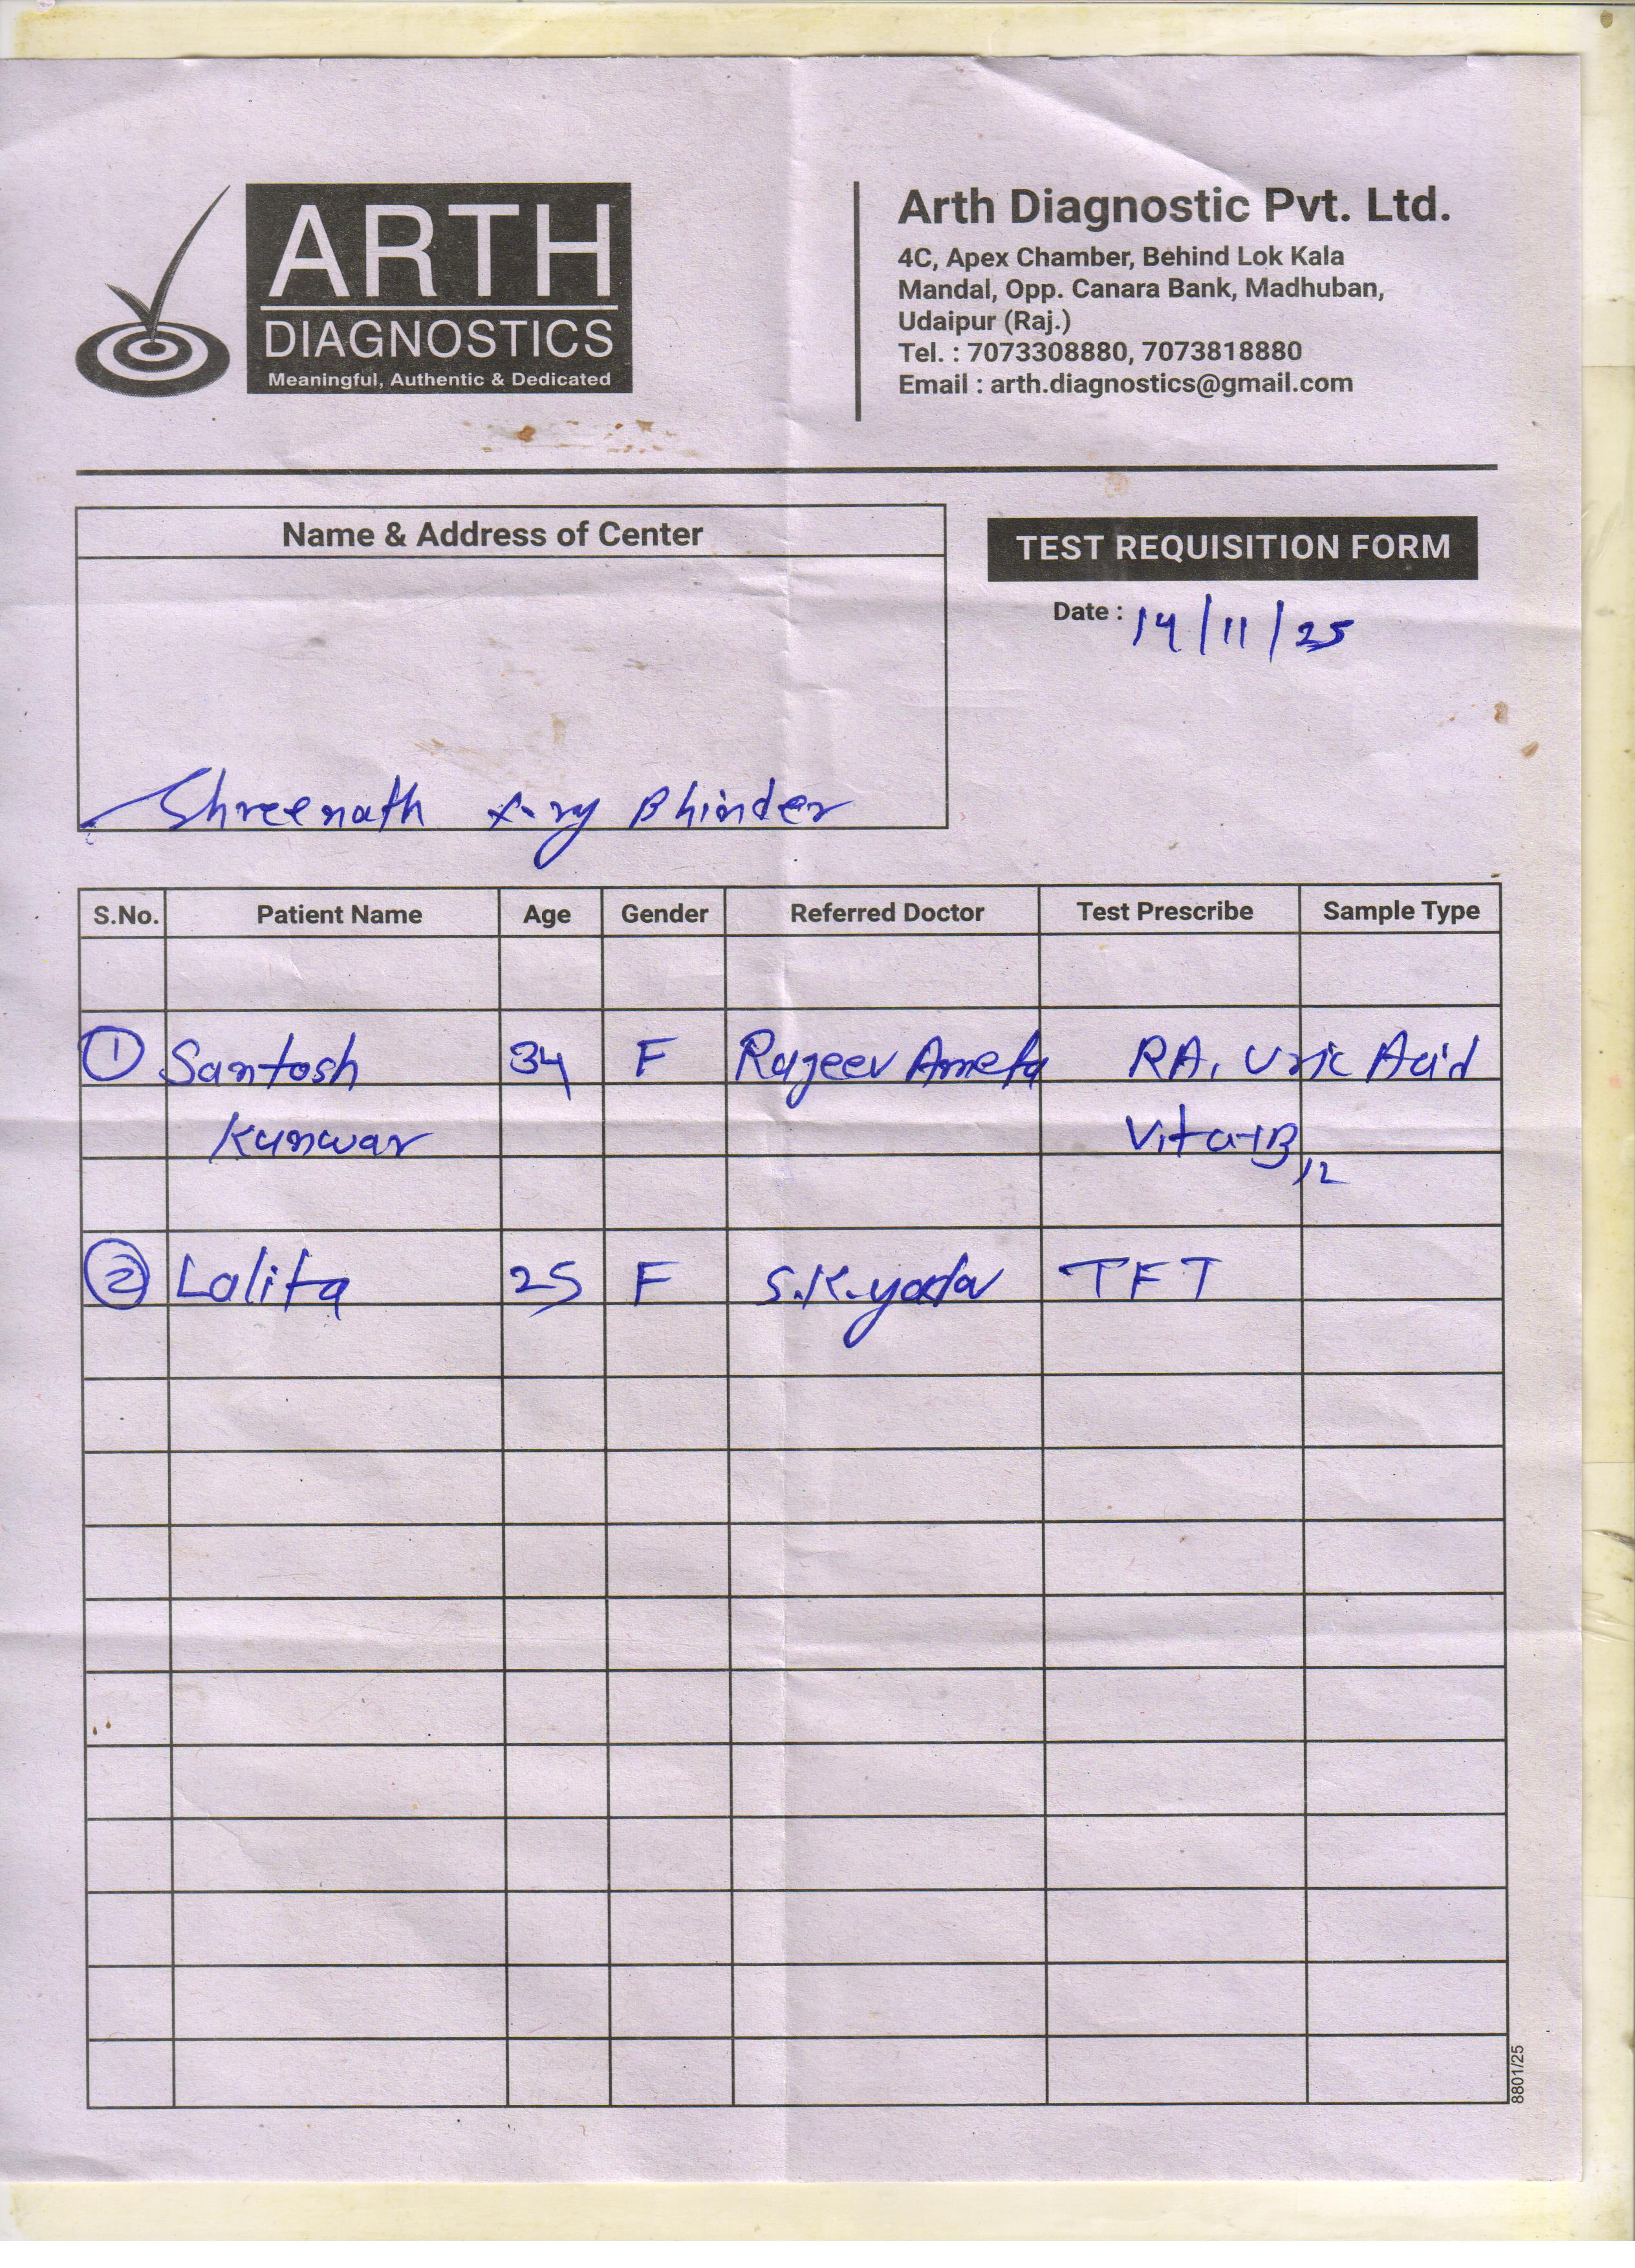 ARTH
DIAGNOSTICS
Meaningful, Authentic & Dedicated
Arth Diagnostic Pvt. Ltd.
4C, Apex Chamber, Behind Lok Kala
Mandal, Opp. Canara Bank, Madhuban,
Udaipur (Raj.)
Tel. : 7073308880, 7073818880
Email : arth.diagnostics@gmail.com
Name & Address of Center
TEST REQUISITION FORM
Date : 14/11/25
Shreenath X-ray Bhinder
S.No. Patient Name Age Gender Referred Doctor Test Prescribe Sample Type
1 Santosh 34 F Rajeev Ameta RA, Uric Acid
Kunwar Vita-B12
2 Lalita 25 F S.K.yadav TFT
8801/25